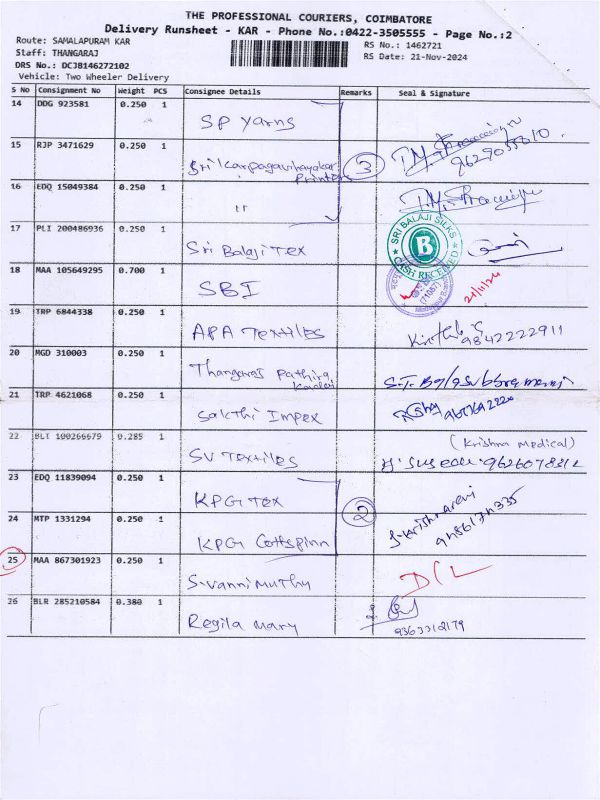 THE PROFESSIONAL COURIERS, COIMBATORE
Delivery Runsheet - KAR - Phone No.:0422-3505555 - Page No.:2
Route: SAMALAPURAM KAR
RS No.: 1462721
Staff: THANGARAJ
RS Date: 21-Nov-2024
DRS No.: DCJ8146272102
Vehicle: Two Wheeler Delivery
S No Consignment No Weight PCS Consignee Details Remarks Seal & Signature
14 DDG 923581 0.250 1
SP Yarns
15 RJP 3471629 0.250 1
Sri Karpagavinayakar Printers
3
16 EDQ 15049384 0.250 1
"
17 PLI 200486936 0.250 1
Sri Balaji Tex
SRI BALAJI SILKS
B
CASH RECEIVED
18 MAA 105649295 0.700 1
SBI
21/11/24
19 TRP 6844338 0.250 1
APA Textiles
9842222911
20 MGD 310003 0.250 1
Thangaraj Pathira
21 TRP 4621068 0.250 1
Sakthi Impex
22 BLT 100266679 0.285 1
SV Textiles
(Krishna Medical)
9626078312
23 EDQ 11839094 0.250 1
KPG Tex
2
24 MTP 1331294 0.250 1
KPG Cottspinn
25 MAA 867301923 0.250 1
S. Vannimuthu
D/L
26 BLR 285210584 0.380 1
Regila Mary
9363312179